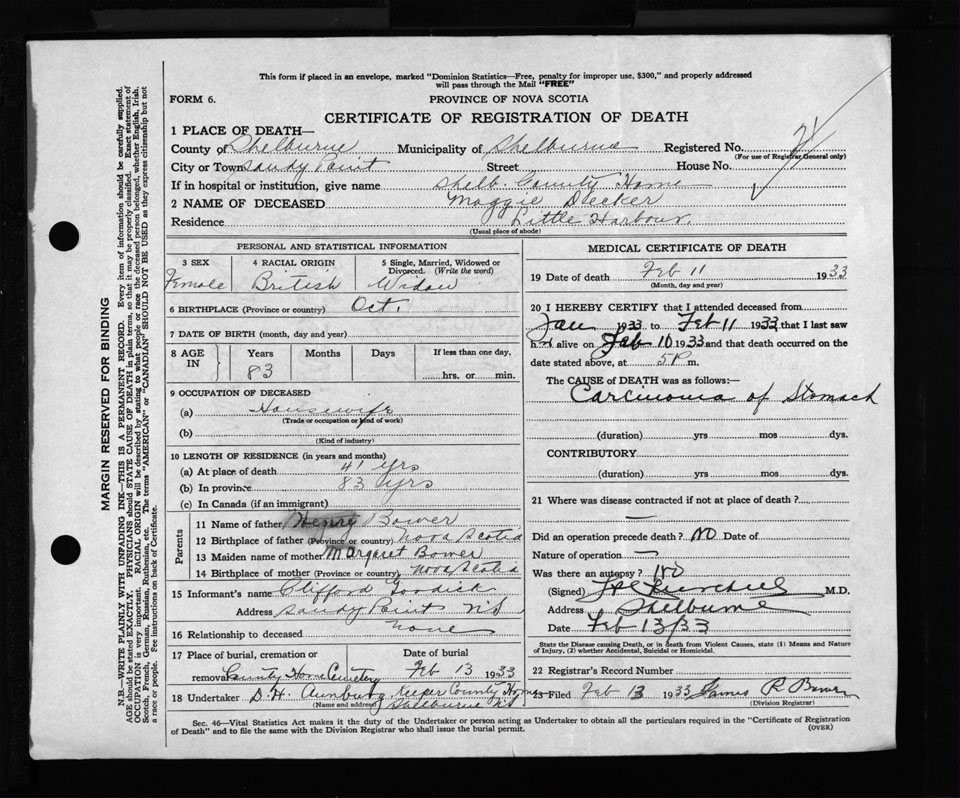 This form if placed in an envelope, marked "Dominion Statistics—Free, penalty for improper use, $300," and properly addressed
will pass through the Mail "FREE"
FORM 6.
PROVINCE OF NOVA SCOTIA
CERTIFICATE OF REGISTRATION OF DEATH
1 PLACE OF DEATH—
County of Shelburne Municipality of Shelburne Registered No.
(For use of Registrar General only)
City or Town Sandy Point Street House No.
If in hospital or institution, give name Shelb. County Home
2 NAME OF DECEASED Maggie Decker
Residence Little Harbour.
(Usual place of abode)
PERSONAL AND STATISTICAL INFORMATION
3 SEX 4 RACIAL ORIGIN 5 Single, Married, Widowed or Divorced. (Write the word)
Female British Widow
6 BIRTHPLACE (Province or country) Oct.
7 DATE OF BIRTH (month, day and year)
8 AGE IN Years Months Days If less than one day,
83 hrs. or min.
9 OCCUPATION OF DECEASED
(a) Housewife
(Trade or occupation or kind of work)
(b)
(Kind of industry)
10 LENGTH OF RESIDENCE (in years and months)
(a) At place of death 41 yrs
(b) In province 83 yrs
(c) In Canada (if an immigrant)
Parents
11 Name of father Henry Bower
12 Birthplace of father (Province or country) Nova Scotia
13 Maiden name of mother Margaret Bower
14 Birthplace of mother (Province or country) Nova Scotia
15 Informant's name Clifford
Address Sandy Point N.S
16 Relationship to deceased none
17 Place of burial, cremation or Date of burial
removal County Home Cemetery Feb 13 1933
18 Undertaker D.H. Keeper County Home
(Name and address) Shelburne N.S
MEDICAL CERTIFICATE OF DEATH
19 Date of death Feb 11 1933
(Month, day and year)
20 I HEREBY CERTIFY that I attended deceased from
Jan 1933 to Feb 11 1933, that I last saw
h alive on Feb 10 1933 and that death occurred on the
date stated above, at 5 P m.
The CAUSE of DEATH was as follows:—
Carcinoma of Stomach
(duration) yrs mos dys.
CONTRIBUTORY
(duration) yrs mos dys.
21 Where was disease contracted if not at place of death?
—
Did an operation precede death? No Date of
Nature of operation —
Was there an autopsy? No
(Signed) M.D.
Address Shelburne
Date Feb 13/33
State the Disease causing Death, or in death from Violent Causes, state (1) Means and Nature
of Injury, (2) whether Accidental, Suicidal or Homicidal.
22 Registrar's Record Number
23 Filed Feb 13 1933 James R Bower
(Division Registrar)
Sec. 46—Vital Statistics Act makes it the duty of the Undertaker or person acting as Undertaker to obtain all the particulars required in the "Certificate of Registration
of Death" and to file the same with the Division Registrar who shall issue the burial permit. (OVER)
MARGIN RESERVED FOR BINDING
N.B.—WRITE PLAINLY WITH UNFADING INK—THIS IS A PERMANENT RECORD. Every item of information should be carefully supplied.
AGE should be stated EXACTLY. PHYSICIANS should STATE CAUSE OF DEATH in plain terms, so that it may be properly classified. Exact statement of
OCCUPATION is very important. RACIAL ORIGIN will be described by stating to what people or race the deceased person belonged, whether English, Irish,
Scotch, French, German, Russian, Ruthenian, etc. The terms "AMERICAN" or "CANADIAN" SHOULD NOT BE USED as they express citizenship but not
a race or people. See instructions on back of Certificate.